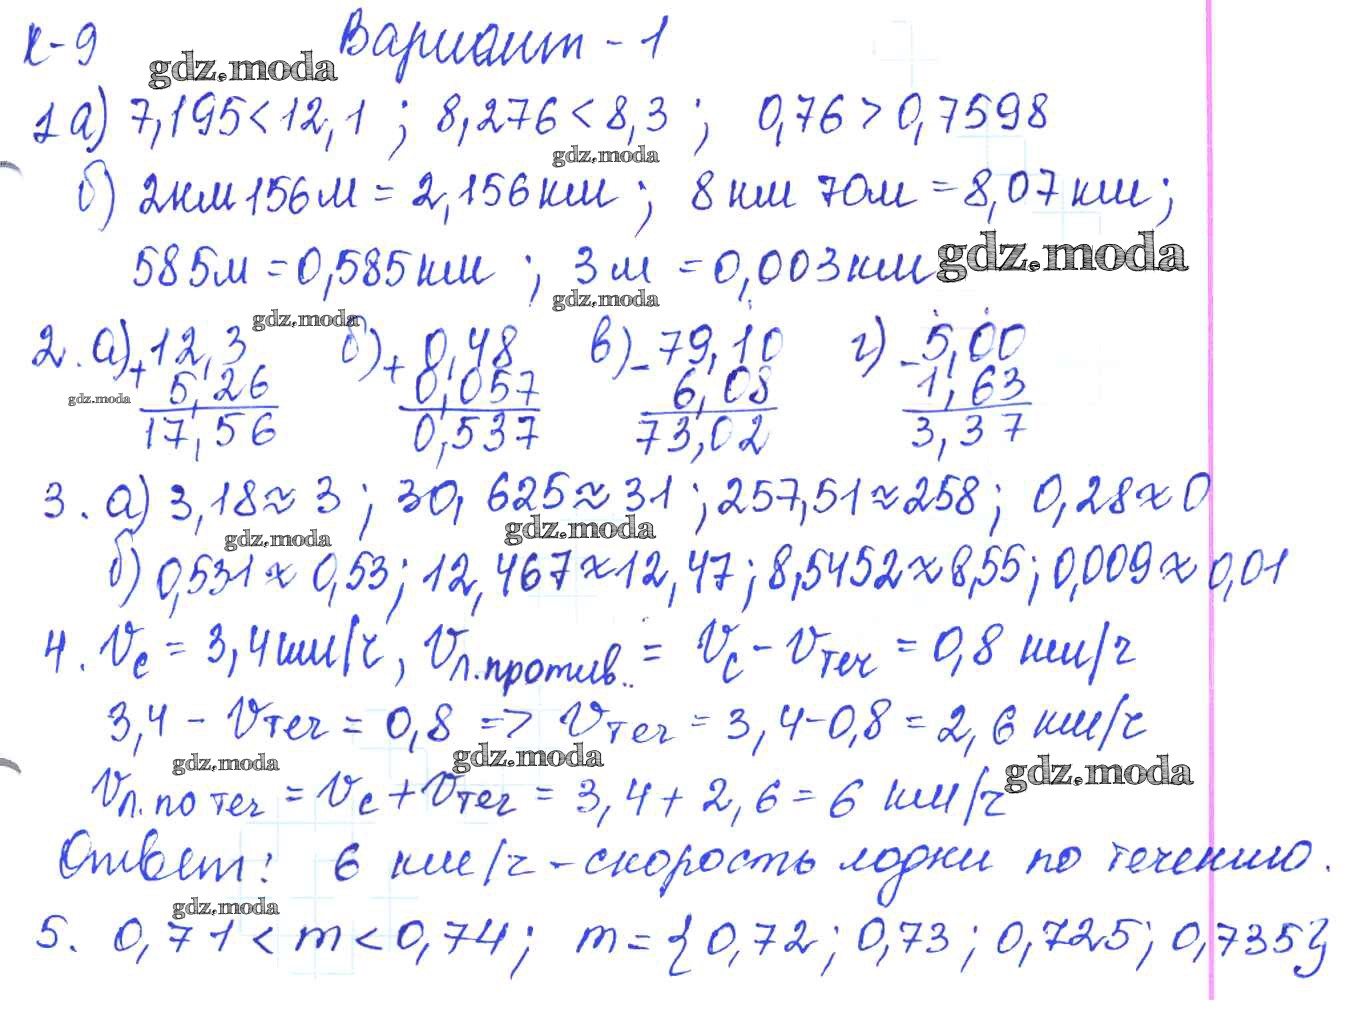 К-9 Вариант - 1
gdz.moda
1а) 7,195 < 12,1 ; 8,276 < 8,3 ; 0,76 > 0,7598
gdz.moda
б) 2км 156м = 2,156 км ; 8 км 70м = 8,07 км ;
585м = 0,585 км ; 3м = 0,003 км gdz.moda
gdz.moda
gdz.moda
2. а) + 12,3 б) + 0,48 в) - 79,10 г) - 5,00
gdz.moda 5,26 0,057 6,08 1,63
17,56 0,537 73,02 3,37
3. а) 3,18 ≈ 3 ; 30,625 ≈ 31 ; 257,51 ≈ 258 ; 0,28 ≈ 0
gdz.moda gdz.moda
б) 0,531 ≈ 0,53 ; 12,467 ≈ 12,47 ; 8,5452 ≈ 8,55 ; 0,009 ≈ 0,01
4. Vс = 3,4 км/ч, Vл.против.. = Vс - Vтеч = 0,8 км/ч
3,4 - Vтеч = 0,8 => Vтеч = 3,4 - 0,8 = 2,6 км/ч
gdz.moda gdz.moda gdz.moda
Vл. по теч = Vс + Vтеч = 3,4 + 2,6 = 6 км/ч
Ответ: 6 км/ч - скорость лодки по течению.
gdz.moda
5. 0,71 < m < 0,74 ; m = {0,72 ; 0,73 ; 0,725 ; 0,735}